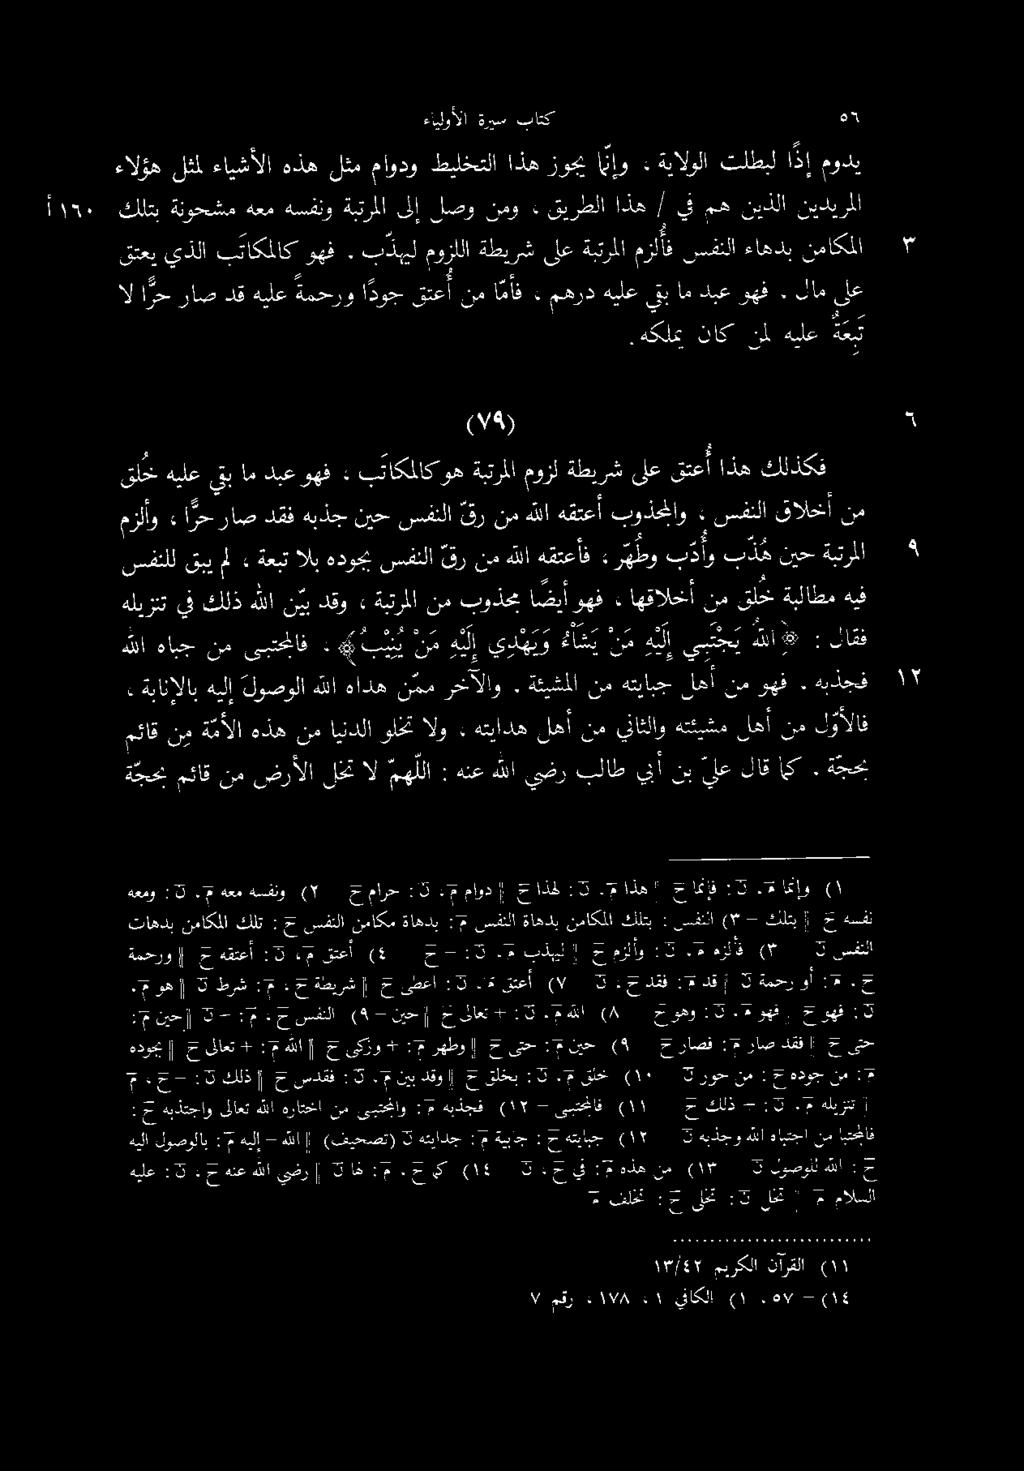 ٥٦ كتاب سيرة الأولياء
يدوم إذًا لبطلت الولاية . وإنّما يجوز هذا التخليط ودوام مثل هذه الأشياء لمثل هؤلاء
المريدين الذين هم في / هذا الطريق ، ومن وصل إلى المرتبة ونفسه معه مشحونة بتلك ١٦٠ أ
٣ المكامن بدهاء النفس فأُلزم المرتبة على شريطة اللزوم ليهذّب . فهو كالمكاتَب الذي يعتق
على مال . فهو عبد ما بقي عليه درهم ، فأمّا من أُعتق جودًا ورحمةً عليه قد صار حرًّا لا
تَبِعَةٌ عليه لمن كان يملكه .
٦ (٧٩)
فكذلك هذا أُعتق على شريطة لزوم المرتبة هو كالمكاتَب ، وهو عبد ما بقي عليه خُلق
من أخلاق النفس ، والمجذوب أعتقه الله من رقّ النفس حين جذبه فقد صار حرًّا ، وألزم
٩ المرتبة حين هُذّب وأُدّب وطُهّر ، فأعتقه الله من رقّ النفس بجوده بلا تبعة ، لم يبق للنفس
فيه مطالبة خُلق من أخلاقها ، فهو أيضًا مجذوب من المرتبة ، وقد بيّن الله ذلك في تنزيله
فقال : ﴿اللهُ يَجْتَبِي إِلَيْهِ مَنْ يَشَاْءُ وَيَهْدِي إِلَيْهِ مَنْ يُنِيْبُ﴾ ، فالمجتبى من جباه الله
١٢ فجذبه . فهو من أهل جبايته من المشيئة . والآخر ممّن هداه الله الوصولَ إليه بالإنابة ،
فالأوّل من أهل مشيئته والثاني من أهل هدايته ، ولا تخلو الدنيا من هذه الأمّة مِن قائم
بحجّة . كما قال عليّ بن أبي طالب رضي الله عنه : اللّهمّ لا تخل الأرض من قائم بحجّة
١) وإنما م ، ن : فإنما ح || هذا م ، ن : لهذا ح || دوام م ، ن : حرام ح ٢) ونفسه معه م ، ن : ومعه
نفسه ح || بتلك – ٣) النفس : بتلك المكامن بدهاة النفس م : بدهاة مكامن النفس ح : تلك المكامن بدهات
النفس ن ٣) فألزم م ، ن : وألزم ح || ليهذب م ، ن : – ح ٤) أعتق م ، ن : أعتقه ح || ورحمة
م : أو رحمة ن || قد م : فقد ح ، ن ٧) أعتق م ، ن : اعطى ح || شريطة ح ، م : شرط ن || هو م ،
ن : فهو ح || وهو م ، ن : وهو ح ٨) الله م ، ن : + تعالى ح || حين – ٩) النفس ح ، م : – ن || حين م :
حتى ح || فقد صار م : فصار ح ٩) حين م : حتى ح || وطهر م : + وزكى ح || الله م : + تعالى ح || بجوده
م : من جوده ح : من حورة ن ١٠) خلق م ، ن : بخلق ح || وقد بين م ، ن : فقدس ح || ذلك ن : – ح ، م
|| تنزيله م ، ن : – ذلك ح ١١) فالمجتبى – ١٢) فجذبه م : والمجتبى من اختاره الله تعالى واجتذبه ح :
فالمجتبا من اجتباه الله وجذبه ن ١٢) جبايته ح : جابية م : جدايته ن (تصحيف) || الله – إليه م : بالوصول اليه
ح : الله للوصول ن ١٣) من هذه م : في ح ، ن ١٤) كما ح ، م : لها ن || رضي الله عنه ح ، ن : عليه
السلام م || تخل ن : تخلى ح : تخلف م
١١) القرآن الكريم ١٣/٤٢
١٤) – ٥٧ ، ١) الكافي ١ ، ١٧٨ ، رقم ٧